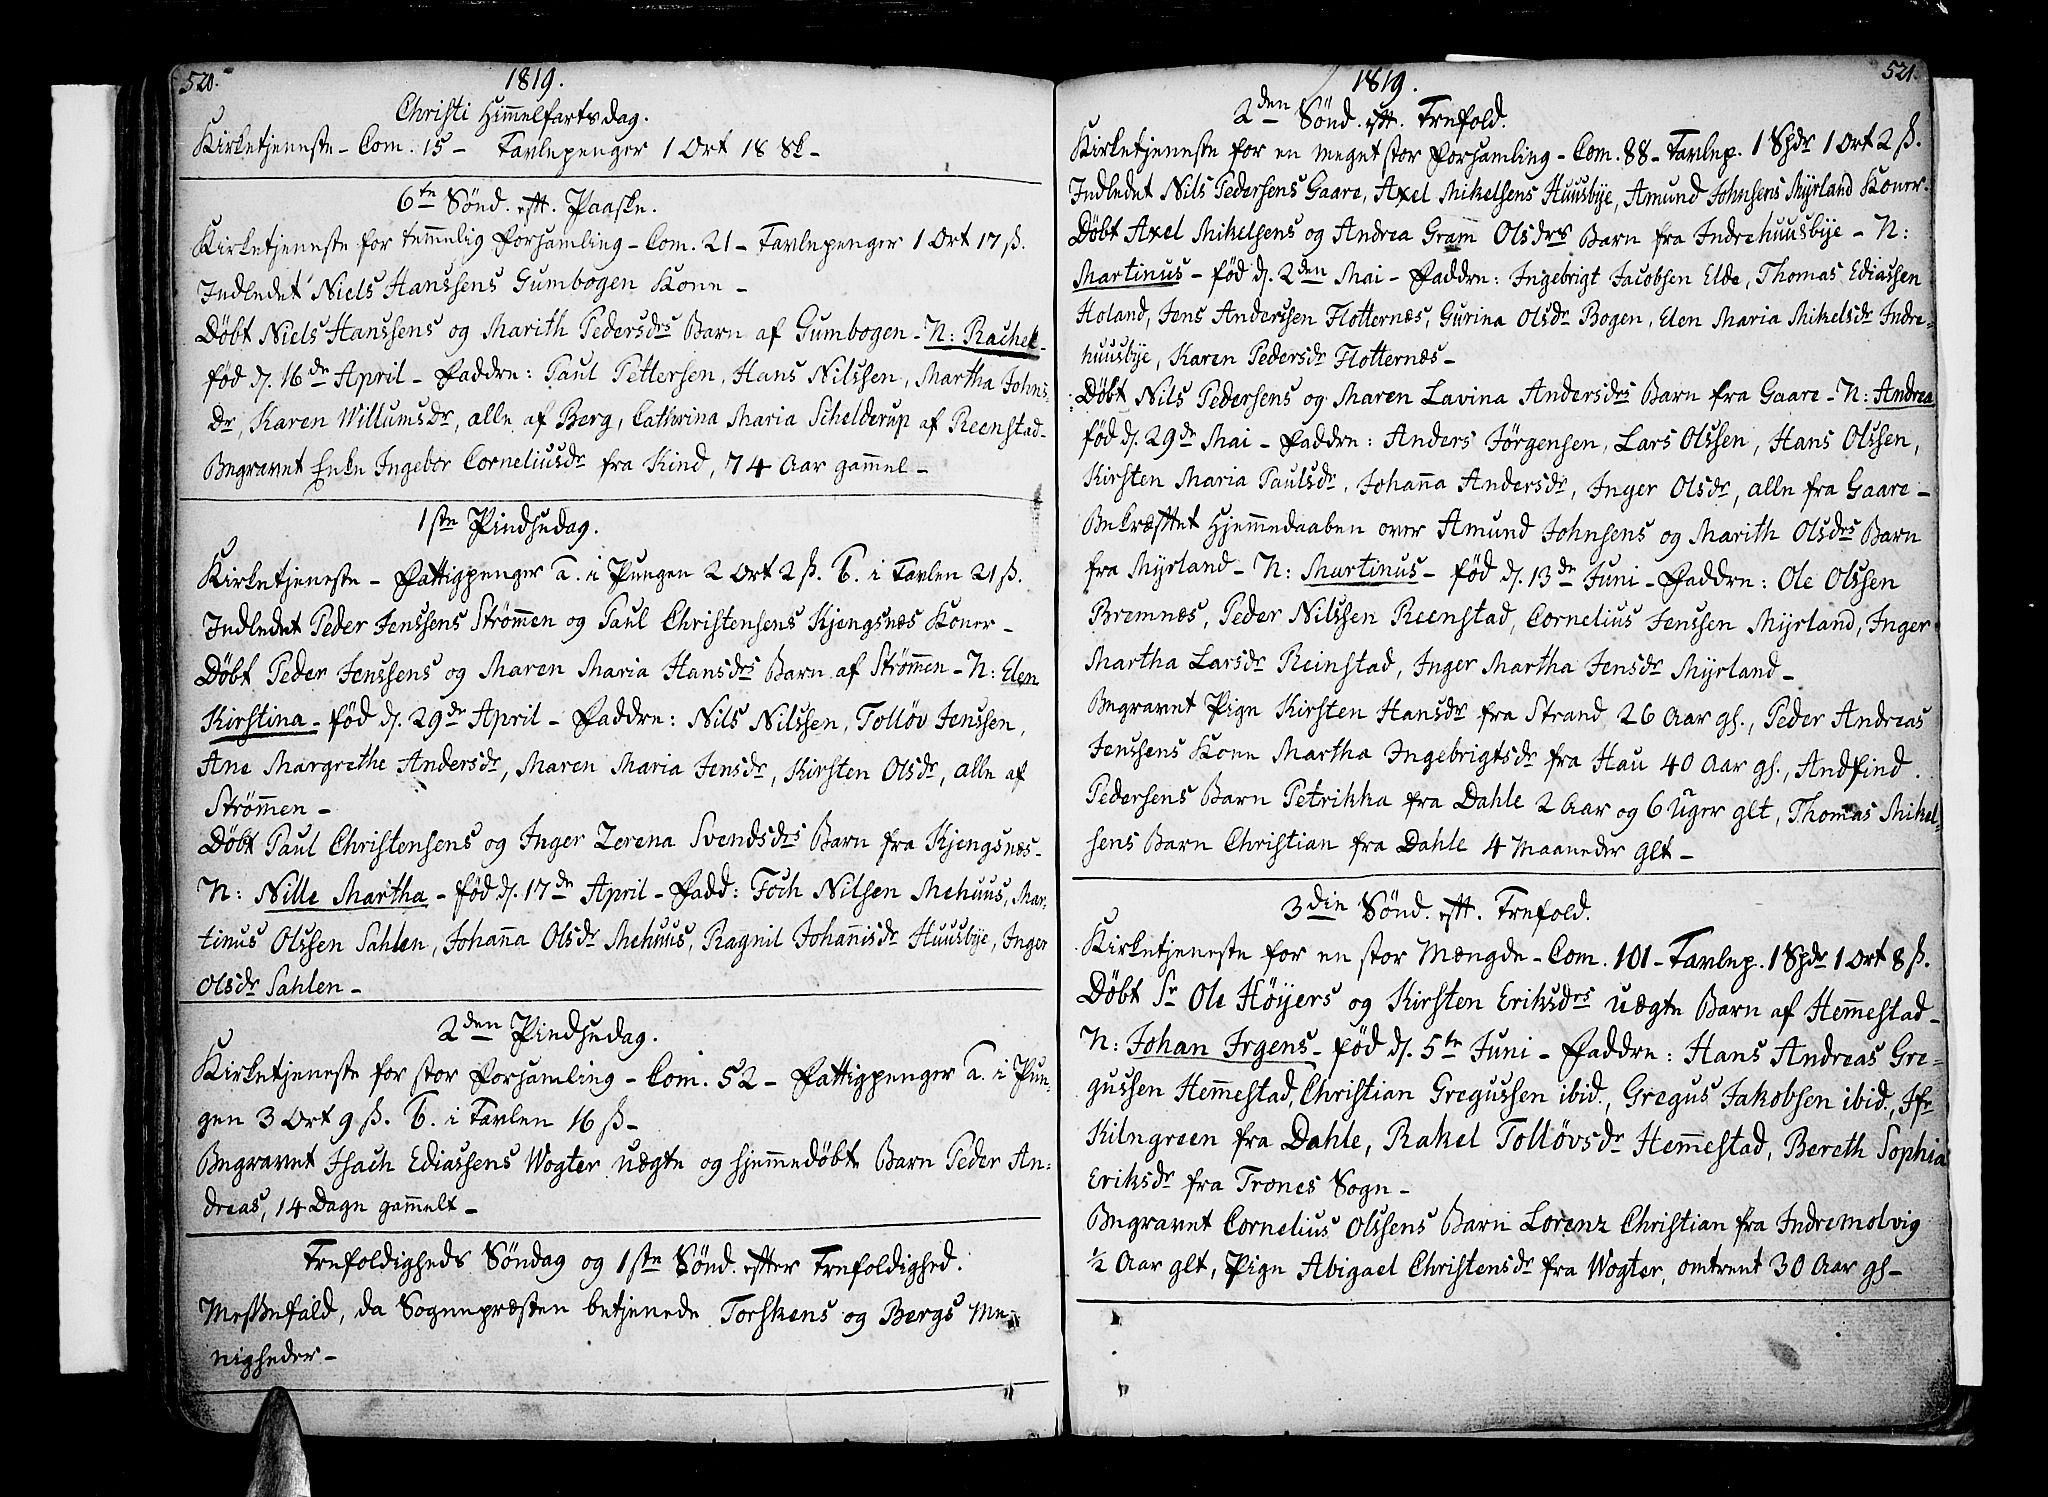 520.
1819.
Christi Himmelfartsdag.
Kirketjeneste - Com. 15 - Tavlepenger 1 Ort 18 Sk -
6te Sönd. eft. Paaske.
Kirketjeneste for temmelig Forsamling - Com. 21 - Tavlepenger 1 Ort 17 ß.
Indledet Niels Hanssens Gumbogen Kone -
Döbt Niels Hanssens og Marith Pedersdrs Barn af Gumbogen - N: Rachel -
föd d. 16de April - Faddre: Paul Pettersen, Hans Nilssen, Martha Johns:
dr, Karen Willumsdr, alle af Berg, Cathrina Maria Schelderup af Reenstad -
Begravet Enke Ingebor Corneliusdr fra Kind, 74 Aar gammel -
1ste Pindsedag.
Kirketjeneste - Fattigpenger a. i Pungen 2 Ort 2 ß. b. i Tavlen 21 ß.
Indledet Peder Jenssens Strömmen og Paul Christensens Kjengsnæs Koner -
Döbt Peder Jenssens og Maren Maria Hansdrs Barn af Strömmen - N: Elen
Kirstina - föd d. 29de April - Faddre: Nils Nilssen, Tollöv Jenssen,
Ane Margrethe Andersdr, Maren Maria Jensdr, Kirsten Olsdr, alle af
Strömmen -
Döbt Paul Christensens og Inger Zerena Svendsdrs Barn fra Kjengsnæs -
N: Nille Martha - föd d. 17de April - Fadd: Foch Nilsen Mehuus, Mar:
tinus Olssen Sahlen, Johanna Olsdr Mehuus, Ragnil Johannisdr Huusbye, Inger
Olsdr Sahlen -
2den Pindsedag.
Kirketjeneste for stor Forsamling - Com. 52 - Fattigpenger a. i Pun:
gen 3 Ort 9 ß. b. i Tavlen 16 ß -
Begravet Isach Ediassens Wogter uægte og hjemmedöbte Barn Peder An:
dreas, 14 Dage gammelt -
Trefoldigheds Söndag og 1ste Sönd. efter Trefoldighed.
Messefald, da Sognepræsten betjenede Torskens og Bergs Me:
nigheder -
521.
1819.
2den Sönd. eft. Trefold.
Kirketjeneste for en meget stor Forsamling - Com. 88 - Tavlep. 1 Spdr 1 Ort 2 ß.
Indledet Nils Pedersens Gaare, Axel Mikelsens Huusbye, Amund Johnsens Myrland Koner.
Döbt Axel Mikelsens og Andrea Gram Olsdrs Barn fra Indrehuusbye - N:
Martinus - föd d. 2den Mai - Faddre: Ingebrigt Jacobsen Elde, Thomas Ediassen
Holand, Jens Anderssen Flotternæs, Gurina Olsdr Bogen, Elen Maria Mikelsdr Indre-
huusbye, Karen Pedersdr Flotternæs -
Döbt Nils Pedersens og Maren Lavina Andersdrs Barn fra Gaare - N: Andrea
föd d. 29de Mai - Faddre: Anders Jörgensen, Lars Olssen, Hans Olssen,
Kirsten Maria Paulsdr, Johanna Andersdr, Inger Olsdr, alle fra Gaare -
Bekræftet Hjemmedaaben over Amund Johnsens og Marith Olsdrs Barn
fra Myrland - N: Martinus - föd d. 13de Juni - Faddre: Ole Olssen
Bremnæs, Peder Nilssen Reenstad, Cornelius Jenssen Myrland, Inger
Martha Larsdr Reinstad, Inger Martha Jensdr Myrland -
Begravet Pige Kirsten Hansdr fra Strand 26 Aar gl., Peder Andreas
Jenssens Kone Martha Ingebrigtsdr fra Hau 40 Aar gl., Andfind
Pedersens Barn Petrikka fra Dahle 2 Aar og 6 Uger glt, Thomas Mikel-
sens Barn Christian fra Dahle 4 Maaneder glt -
3die Sönd. eft. Trefold.
Kirketjeneste for en stor Mængde - Com. 101 - Tavlep. 1 Spdr 1 Ort 8 ß.
Döbt Sr Ole Höyers og Kirsten Eriksdrs uægte Barn af Hemmestad -
N: Johan Irgens - föd d. 5te Juni - Faddre: Hans Andreas Gre-
gussen Hemmestad, Christian Gregussen ibid., Gregus Jakobsen ibid., Jfr
Kilngreen fra Dahle, Rakel Tollövsdr Hemmestad, Bereth Sophia
Eriksdr fra Trones Sogn -
Begravet Cornelius Olssens Barn Lorenz Christian fra Indremolvig
1/2 Aar glt, Pige Abigael Christensdr fra Wogter, omtrent 30 Aar gl -